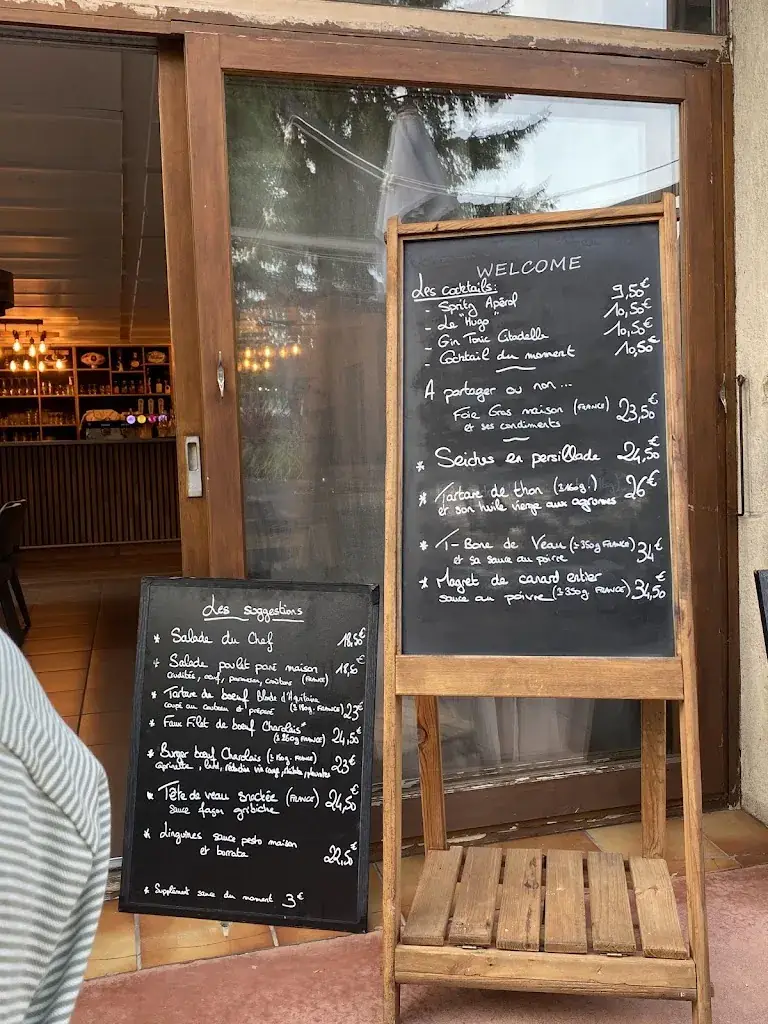 WELCOME
Les cocktails:
- Spritz Apérol 9,50€
- Le "Hugo" 10,50€
- Gin Tonic Citadelle 10,50€
- Cocktail du moment 10,50€
A partager ou non...
Foie Gras maison (FRANCE) 23,50€
et ses condiments
* Seiches en persillade 24,50€
* Tartare de thon (±160g.) 26€
et son huile vierge aux agrumes
* T-Bone de Veau (±350g FRANCE) 34€
et sa sauce au poivre
* Magret de canard entier
sauce au poivre (±350g FRANCE) 34,50€
Les suggestions
* Salade du Chef 18,50€
* Salade poulet pané maison 18,50€
crudités, oeuf, parmesan, croûtons (FRANCE)
* Tartare de boeuf Blonde d'Aquitaine
coupé au couteau et préparé (±180g. FRANCE) 23€
* Faux Filet de boeuf Charolais
(±260g FRANCE) 24,50€
* Burger boeuf Charolais 23€
* Tête de veau snackée (FRANCE) 24,50€
sauce façon gribiche
* Linguines sauce pesto maison
et burrata 22,50€
* Supplément sauce du moment 3€